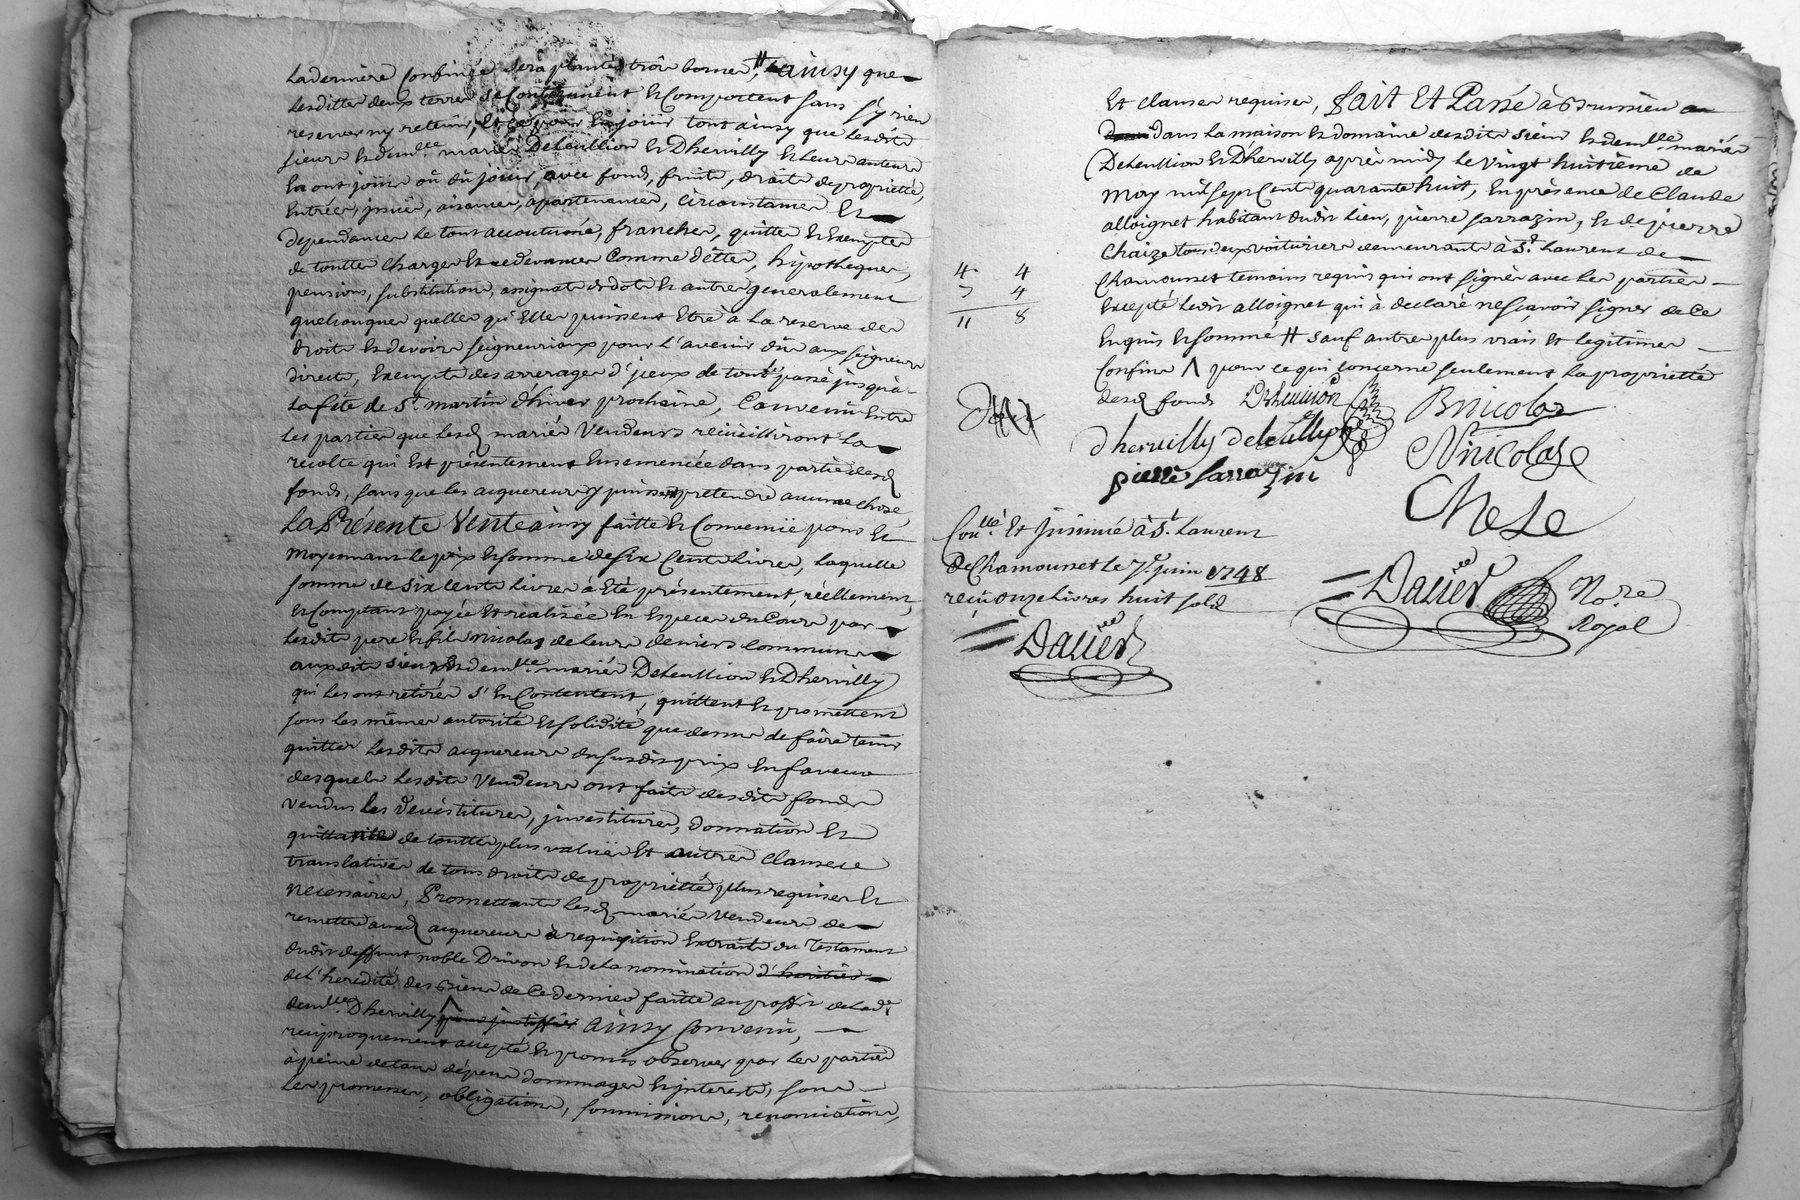 La derniere confinée sera planté trois bornes, # ainsy que
lesdittes deux terres se contiennent et comportent sans s'y rien
reserver ny retenir, et ce pour en joüir tout ainsy que lesdits
sieur et dem.lle mariés Deleullion et Dhervilly et leurs auteurs
en ont joüis où dû joüir, avec fonds, fruits, droits de proprietté,
entrées, issuës, aisances, apartenances, circonstances et
dependances le tout accoutumé, franches, quittes et exemptes
de touttes charges et redevances comme dettes, hipotheques,
pensions, substitutions, assignats de dots et autres generalement
quelconques quelles qu'elles puissent etre à la reserve des
droits et devoirs seigneuriaux pour l'avenir dûs aux seigneurs
directs, exempts des arrerages d'jceux de tout le passé jusqu'à
la fête de St martin d'hiver prochaine, convenu entre
les parties que lesd mariés vendeurs recüeilliront la
recolte qui est présentement ensemencée dans partie desd
fonds, sans que les acquereurs y puissent pretendre aucune chose,
La Présente Vente ainsy faitte et convenüe pour et
moyennant le prix et somme de six cents livres, laquelle
somme de six cents livres à eté présentement, réellement,
et comptant payée et realisée en especes du cours par
lesdits pere et fils nicolas de leurs deniers communs
auxdits sieur et dem.lle mariés Deleullion et Dhervilly
qui les ont retirés s'en contentent, quittent et promettent
sous les mêmes autorité et solidité que dessus de faire tenir
quittes lesdits acquereurs du susdit prix en faveur
desquels lesdits vendeurs ont faits desdits fonds
vendus les devestitures, jnvestitures, donnation et
quittance de touttes plus valües et autres clauses
translatives de tous droits de proprietté plus requises et
necessaires, Promettants lesd mariés vendeurs de
remettre auxd acquereurs à requisition extraits du testament
dudit deffunt noble Drivon et de la nomination d'heritier
de l'heredité des biens de ce dernier faitte au proffit de lade
dem.lle Dhervilly ^ pour justiffier ainsy convenu,
reciproquement accepté et promis observer par les parties
à peine de tous dépens dommages et jnterests, sous
les promesses, obligations, soumissions, renonciations,
et clauses requises, fait et Passé à Brussieu
dans la maison et domaine desdits sieur et dem.lle mariés
Deleullion et Dhervilly après midy le vingt huitième de
may mil sept cents quarante huit, en présence de Claude
alloignet habitant dudit lieu, pierre sarrazin, et de pierre
Chaize tous deux voituriers demeurants à St Laurent de
Chamousset temoins requis qui ont signés avec les parties
excepté ledit alloignet qui à declaré ne sçavoir signer de ce
enquis et sommé # sauf autres plus vrais et legitimes
confins ^ pour ce qui concerne seulement la proprietté
desd fonds Deleullion
Bnicolas
dhervilly deleullion
Nnicolas
pierre sarrazin
Chese
Dalier
No.re
Royal
4 4
7 4
11 8
Con.llé et jnsinué à St Laurent
de Chamousset le 7e juin 1748
reçu onze livres huit sols
Dalier